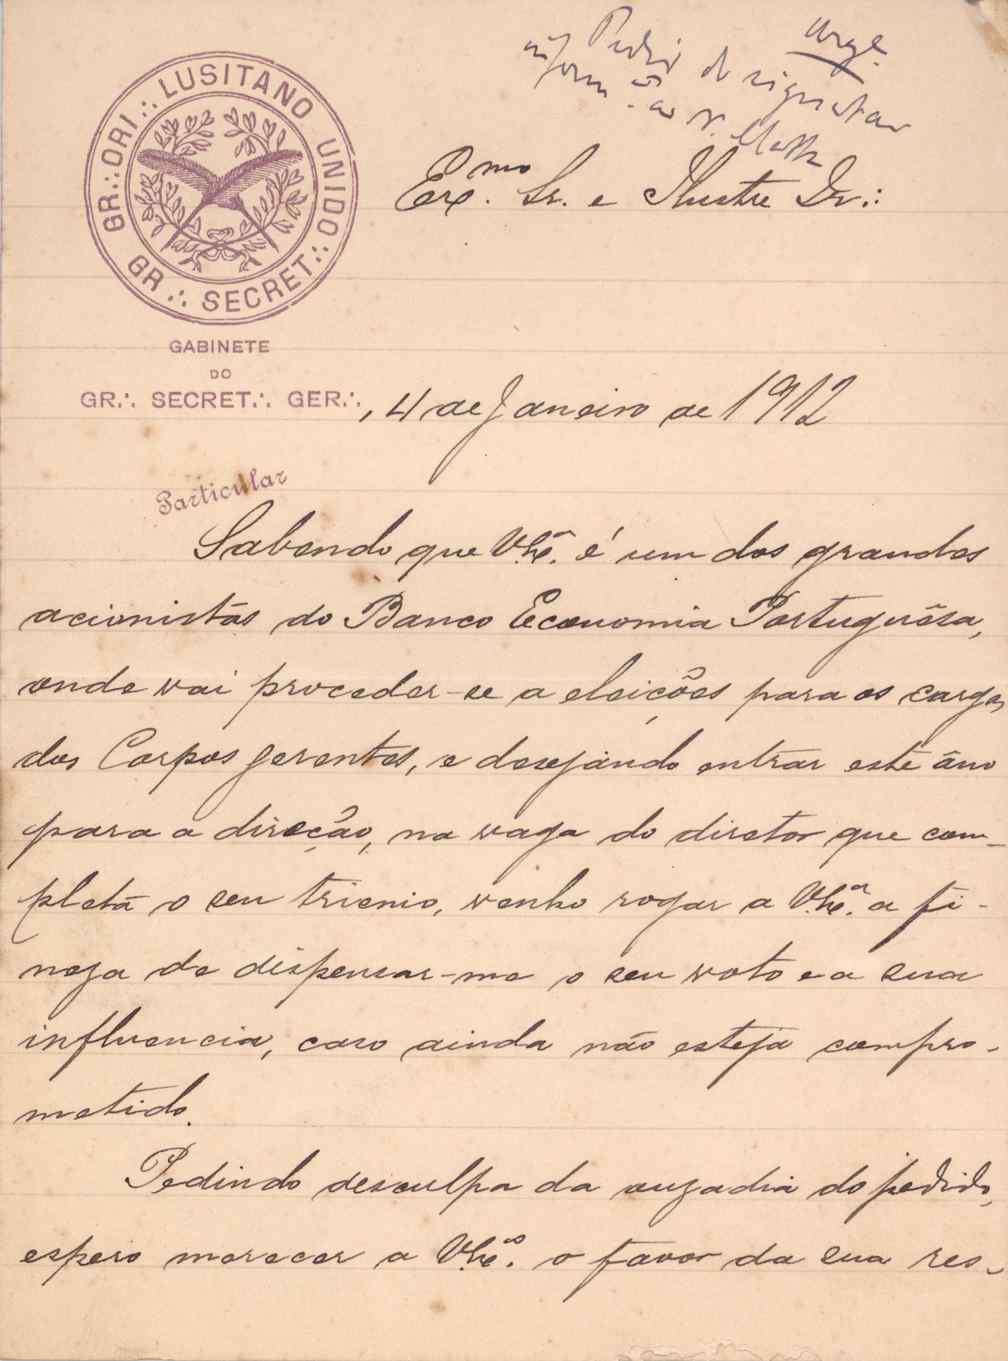 Urge.
Pedir
GR∴ ORI∴ LUSITANO UNIDO∴
GR∴ SECRET∴
Exmo. Sr. e Ilustre Ir∴
GABINETE
DO
GR∴ SECRET∴ GER∴, 4 de Janeiro de 1912
Particular
Sabendo que V. é um dos grandes
acionistas do Banco Economia Portuguêsa,
onde vai proceder-se a eleições para os cargos
dos Corpos gerentes, e desejando entrar este âno
para a direcção, na vaga do diretor que com-
pletá o seu trienio, venho rogar a V. a fi-
neza de dispensar-me o seu voto e a sua
influencia, caso ainda não esteja compro-
metido.
Pedindo desculpa da ouzadia do pedido,
espero merecer a V. o favor da sua res-